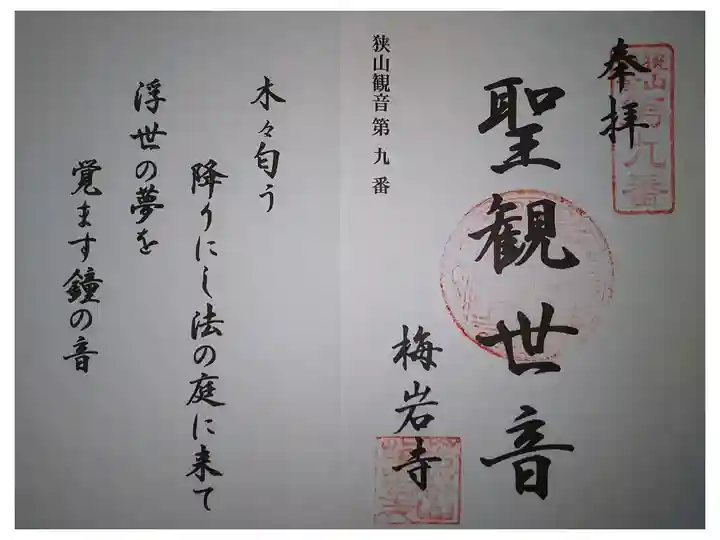 奉拝
狭山
第九番
聖観世音
梅岩寺
狭山観音第九番
木々匂う
降りにし法の庭に来て
浮世の夢を
覚ます鐘の音